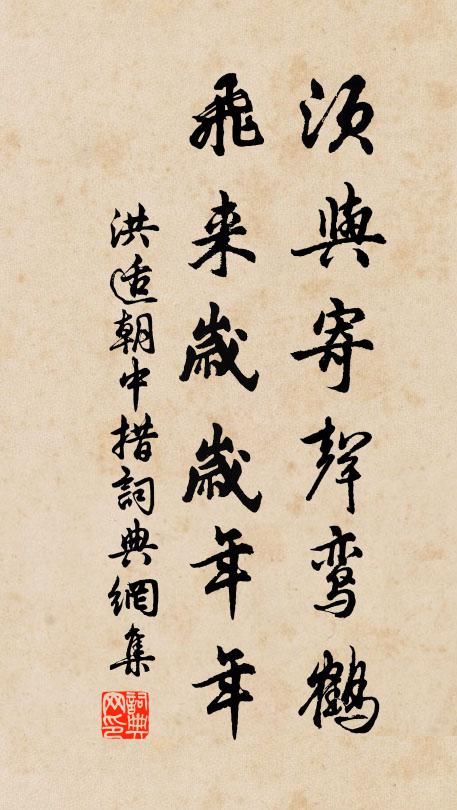 须與寄聲鸾鶴
飛来歲歲年年
洪适朝中措詞典網集
詞典网印